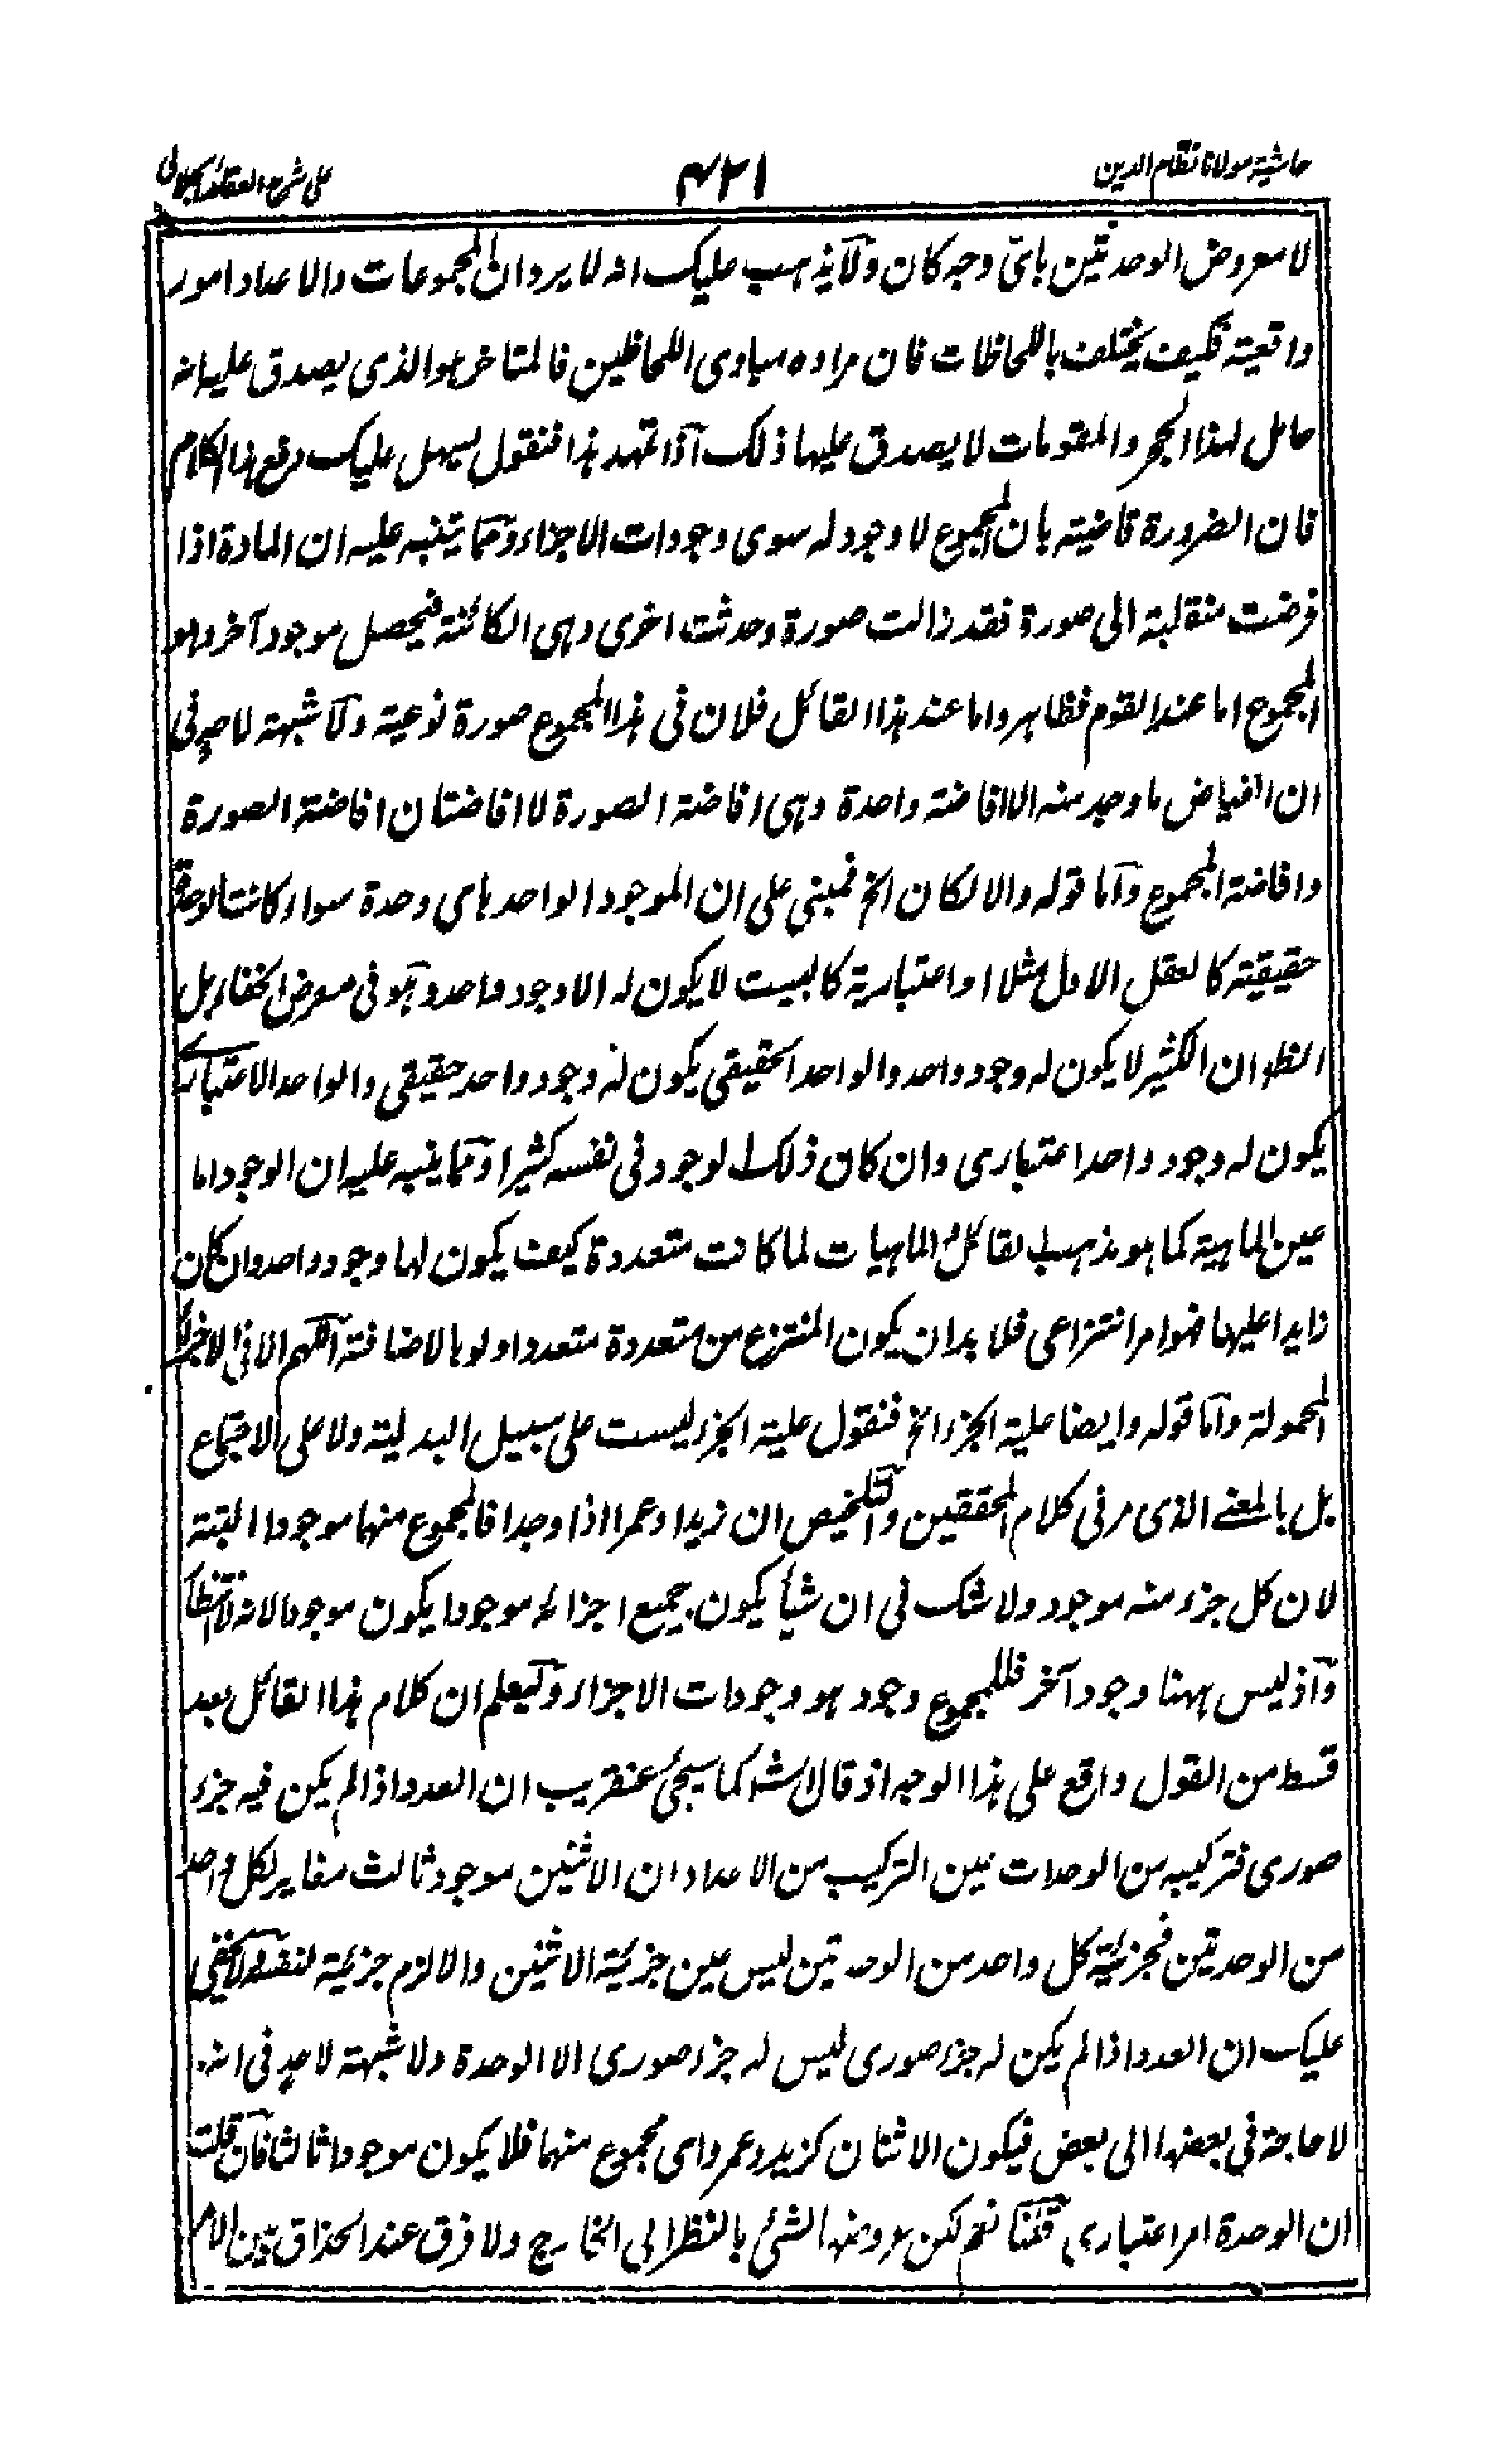 حاشیة مولانا نظام الدین
۴۲۱
علی شرح العقائد الجلالی
لا معروض الوحدتین بای وجه کان ولا یذهب علیک انه لا یرد ان المجموعات والاعداد امور
واقعیة فکیف یختلف باللحاظات فان مراده مباوی اللحاظین فالمتاخر هو الذی یصدق علیه انه
حامل لهذا الحجر والمقومات لا یصدق علیها ذلک اذا تمهد هذا فنقول یسهل علیک دفع هذا الکلام
فان الضرورة قاضیة بان المجموع لا وجود له سوی وجودات الاجزاء ومما یتنبه علیه ان المادة اذا
فرضت منقلبة الی صورة فقد زالت صورة وحدثت اخری وهی الکائنة فیحصل موجود آخر وهو
المجموع اما عند القوم فظاهر واما عند هذا القائل فلان فی هذا المجموع صورة نوعیة ولا شبهة لاحد فی
ان الفیاض ما وجد منه الا افاضة واحدة وهی افاضة الصورة لا افاضتان افاضة الصورة
وافاضة المجموع واما قوله والا لکان الخ فمبنی علی ان الموجود الواحد بای وحدة سواء کانت الوحدة
حقیقیة کالعقل الاول مثلا او اعتباریة کالبیت لا یکون له الا وجود واحد وهو فی معرض الخفاء بل
الظ ان الکثیر لا یکون له وجود واحد والواحد الحقیقی یکون له وجود واحد حقیقی والواحد الاعتباری
یکون له وجود واحد اعتباری وان کان ذلک الوجود فی نفسه کثیرا ومما ینبه علیه ان الوجود اما
عین الماهیة کما هو مذهب القائل فالماهیات لما کانت متعددة کیف یکون لها وجود واحد وان کان
زایدا علیها فهو امر انتزاعی فلا بد ان یکون المنتزع من متعددة متعددا ولو بالاضافة اللهم الا فی الاجزاء
المحمولة واما قوله وایضا علیة الجزء الخ فنقول علیة الجزء لیست علی سبیل البدلیة ولا علی الاجتماع
بل بالمعنے الذی مر فی کلام المحققین والتلخیص ان زیدا وعمرا اذا وجدا فالمجموع منهما موجود البتة
لان کل جزء منه موجود ولا شک فی ان شیأ یکون جمیع اجزائه موجودا یکون موجودا لانه
واذ لیس ههنا وجود آخر فللمجموع وجود هو وجودات الاجزاء ولیعلم ان کلام هذا القائل بعد
قسط من القول واقع علی هذا الوجه اذ قال الش کما سیجئ عنقریب ان العدد اذا لم یکن فیه جزء
صوری فترکیبه من الوحدات عین الترکیب من الاعداد ان الاثنین موجود ثالث مغایر لکل واحد
من الوحدتین فجزئیة کل واحد من الوحدتین لیس عین جزئیة الاثنین والا لزم جزئیة لنفسه ولا یخفی
علیک ان العدد اذا لم یکن له جزء صوری لیس له جزء صوری الا الوحدة ولا شبهة لاحد فی انه
لا حاجة فی بعضها الی بعض فیکون الاثنان کزید وعمرو ای مجموع منهما فلا یکون موجودا ثالثا فان قلت
ان الوحدة امر اعتباری قلنا نعم لکن عروضها الشئ بالنظر الی الخارج ولا فرق عند الحذاق بین الامر